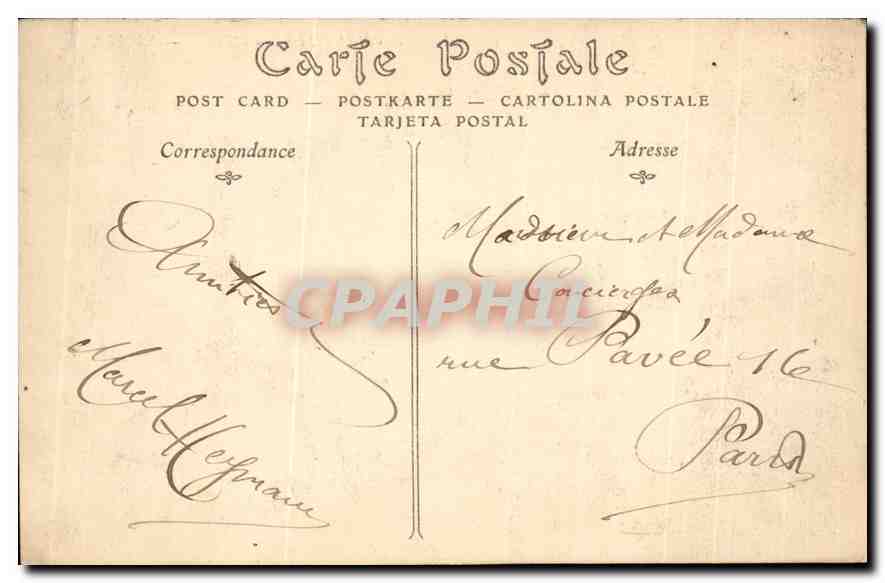 Carte Postale
POST CARD — POSTKARTE — CARTOLINA POSTALE
TARJETA POSTAL
Correspondance
Amitiés
Marcel Heymann
Adresse
Monsieur et Madame
Concierges
rue Pavée 16
Paris
CPAPHIL